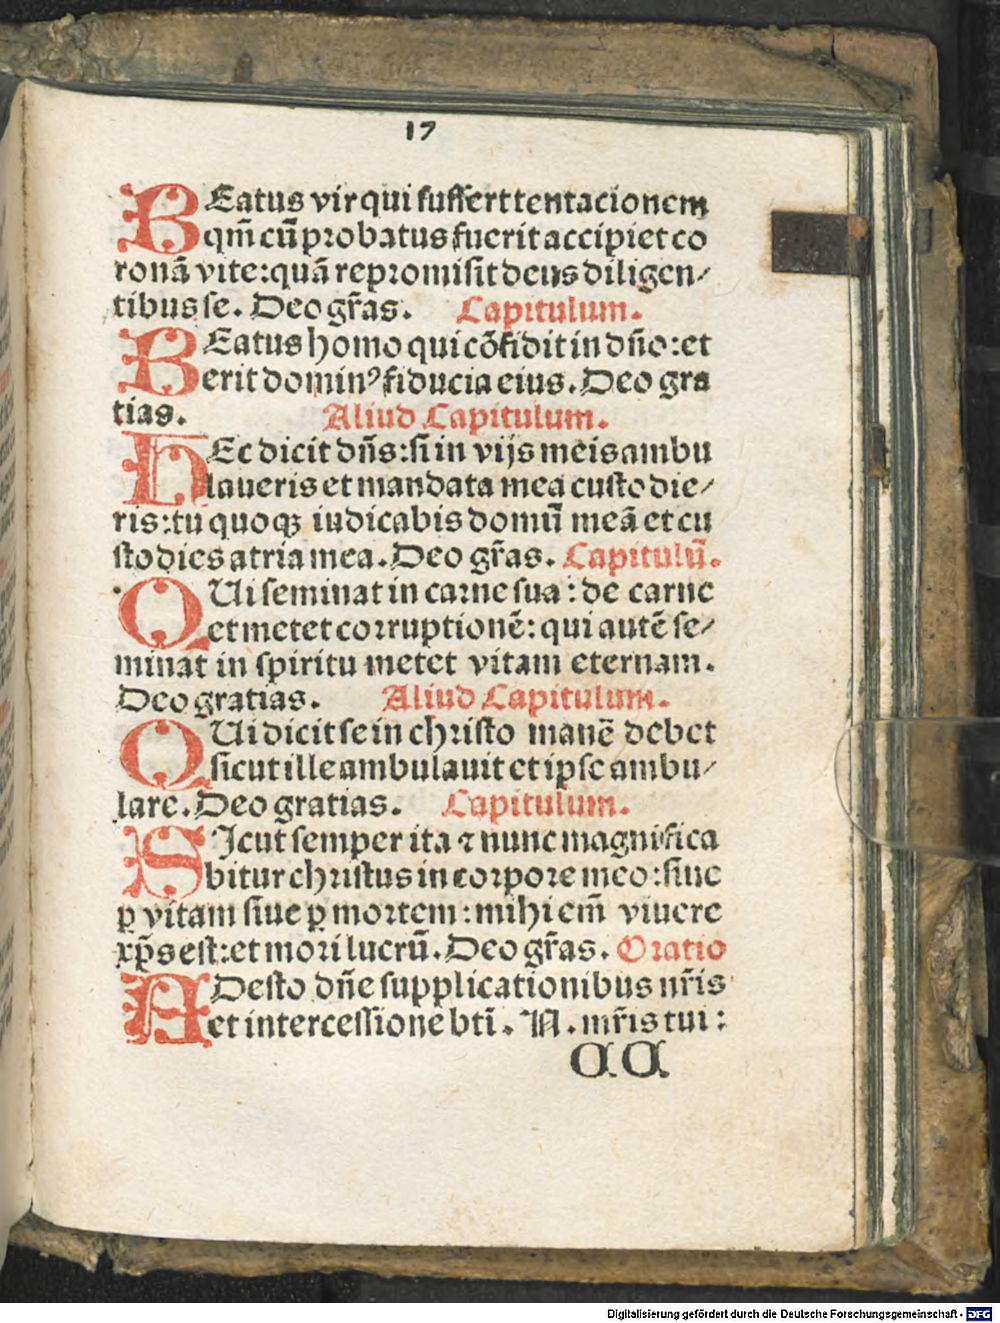 17
BEatus vir qui suffert tentacionem
qm̄ cū probatus fuerit accipiet co
ronā vite: quā repromisit deus diligen⸗
tibus se. Deo gr̄as. Capitulum.
BEatus homo qui cōfidit in dño: et
erit dominꝰ fiducia eius. Deo gra
tias. Aliud Capitulum.
HEc dicit dñs: si in vijs meis ambu
laueris et mandata mea custodie⸗
ris: tu quoqꝫ iudicabis domū meā et cu
stodies atria mea. Deo gr̄as. Capitulū.
QUi seminat in carne sua: de carne
et metet corruptionē: qui autē se⸗
minat in spiritu metet vitam eternam.
Deo gratias. Aliud Capitulum.
QUi dicit se in christo manē debet
sicut ille ambulauit et ipse ambu⸗
lare. Deo gratias. Capitulum.
SJcut semper ita ⁊ nunc magnifica
bitur christus in corpore meo: siue
ꝑ vitam siue ꝑ mortem: mihi em̄ viuere
xp̄s est: et mori lucrū. Deo gr̄as. Oratio
ADesto dñe supplicationibus nr̄is
et intercessione btī. N. mr̄is tui:
aa
Digitalisierung gefördert durch die Deutsche Forschungsgemeinschaft - DFG